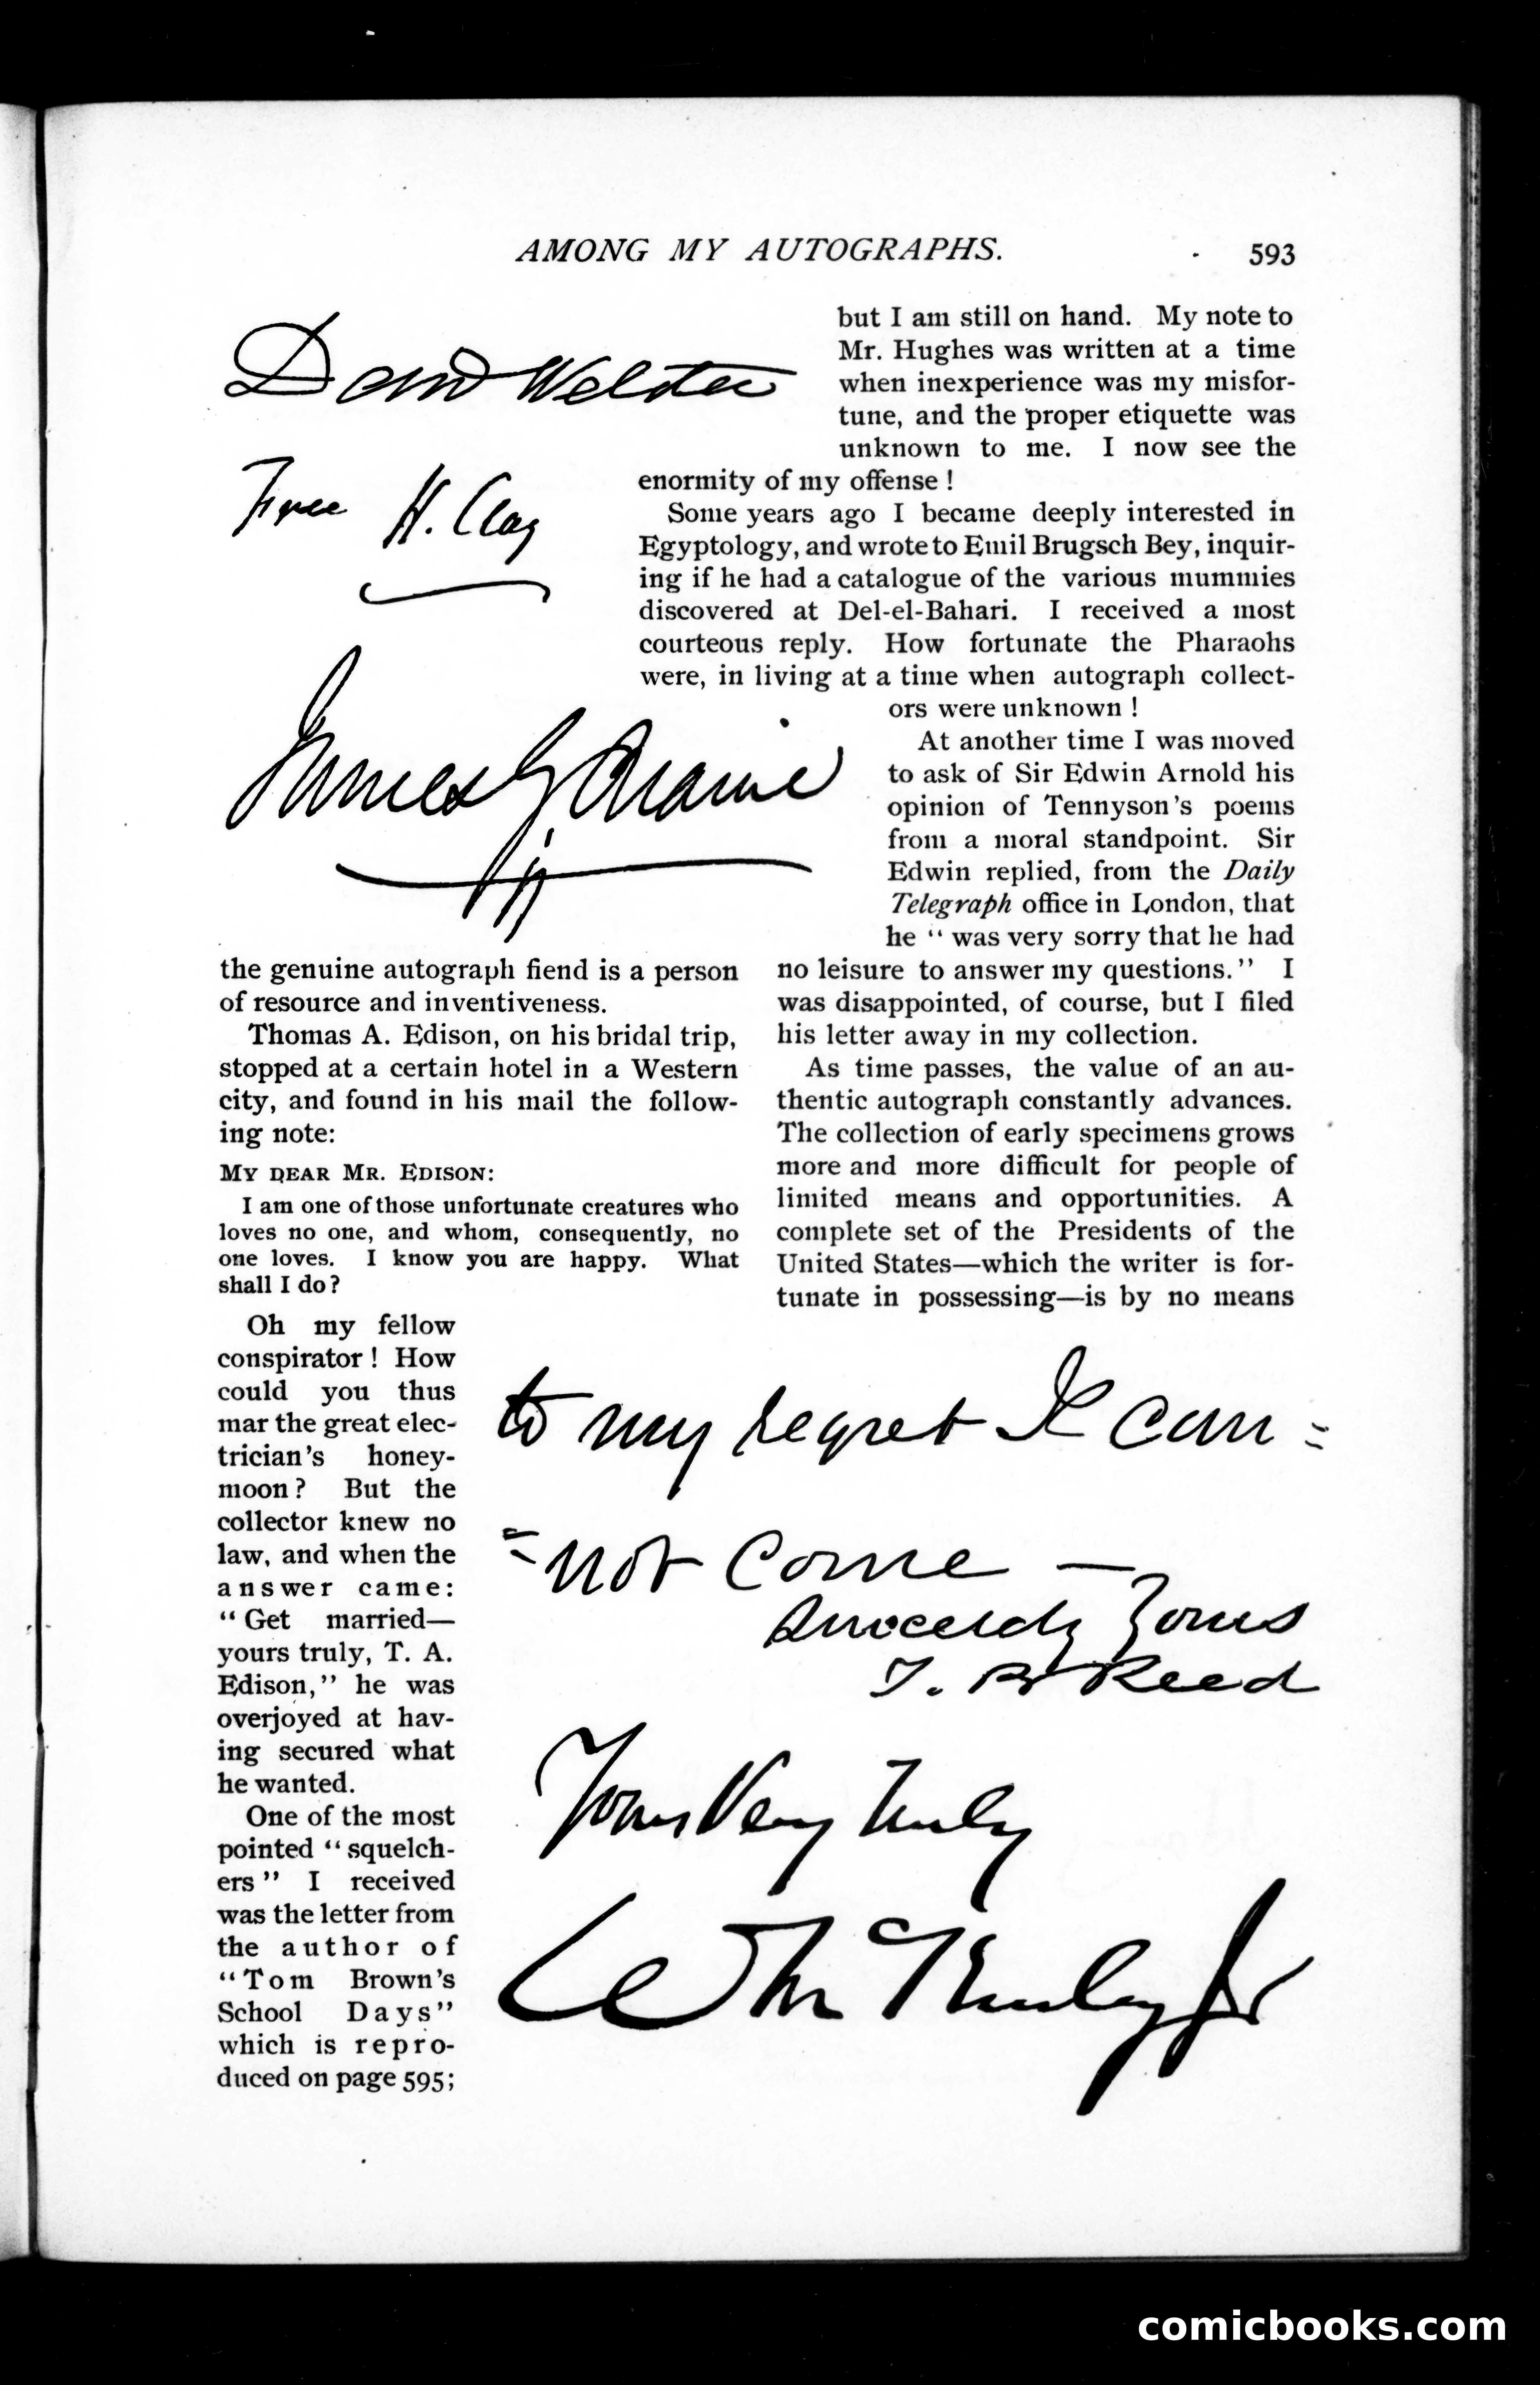 AMONG MY AUTOGRAPHS. 593
Danl Webster
Free H. Clay
James G. Blaine
the genuine autograph fiend is a person
of resource and inventiveness.
Thomas A. Edison, on his bridal trip,
stopped at a certain hotel in a Western
city, and found in his mail the follow-
ing note:
MY DEAR MR. EDISON:
I am one of those unfortunate creatures who
loves no one, and whom, consequently, no
one loves. I know you are happy. What
shall I do?
Oh my fellow
conspirator! How
could you thus
mar the great elec-
trician's honey-
moon? But the
collector knew no
law, and when the
answer came:
"Get married—
yours truly, T. A.
Edison," he was
overjoyed at hav-
ing secured what
he wanted.
One of the most
pointed "squelch-
ers" I received
was the letter from
the author of
"Tom Brown's
School Days"
which is repro-
duced on page 595;
but I am still on hand. My note to
Mr. Hughes was written at a time
when inexperience was my misfor-
tune, and the proper etiquette was
unknown to me. I now see the
enormity of my offense!
Some years ago I became deeply interested in
Egyptology, and wrote to Emil Brugsch Bey, inquir-
ing if he had a catalogue of the various mummies
discovered at Del-el-Bahari. I received a most
courteous reply. How fortunate the Pharaohs
were, in living at a time when autograph collect-
ors were unknown!
At another time I was moved
to ask of Sir Edwin Arnold his
opinion of Tennyson's poems
from a moral standpoint. Sir
Edwin replied, from the Daily
Telegraph office in London, that
he "was very sorry that he had
no leisure to answer my questions." I
was disappointed, of course, but I filed
his letter away in my collection.
As time passes, the value of an au-
thentic autograph constantly advances.
The collection of early specimens grows
more and more difficult for people of
limited means and opportunities. A
complete set of the Presidents of the
United States—which the writer is for-
tunate in possessing—is by no means
to my regret I can=
=not come —
Sincerely Yours
T. B. Reed
Yours Very Truly
Wm McKinley Jr
comicbooks.com